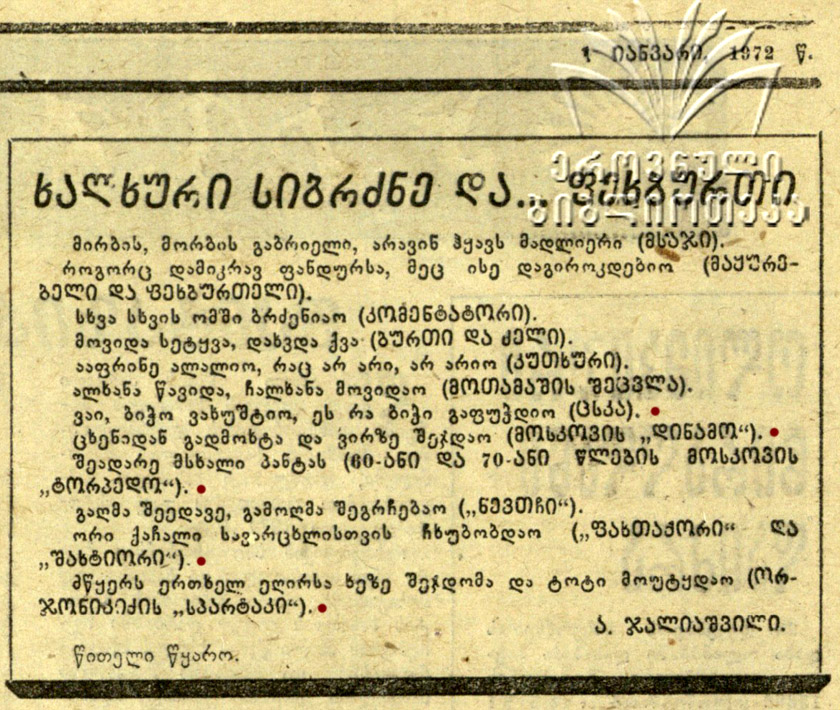 1 იანვარი, 1972 წ.
ეროვნული
ბიბლიოთეკა
ხალხური სიბრძნე და... ფეხბურთი
მირბის, მორბის გაბრიელი, არავინ ჰყავს მადლიერი (მსაჯი).
როგორც დამიკრავ ფანდურსა, მეც ისე დაგიროკდებიო (მაყურე-
ბელი და ფეხბურთელი).
სხვა სხვის ომში ბრძენიაო (კომენტატორი).
მოვიდა სეტყვა, დახვდა ქვა (ბურთი და ძელი).
ააფრინე ალალიო, რაც არ არი, არ არიო (კუთხური).
ალხანა წავიდა, ჩალხანა მოვიდაო (მოთამაშის შეცვლა).
ვაი, ბიჭო ვახუშტიო, ეს რა ბიჭი გაფუჭდიო (ცსკა).
ცხენიდან გადმოხტა და ვირზე შეჯდაო (მოსკოვის „დინამო“).
შეადარე მსხალი პანტას (60-ანი და 70-ანი წლების მოსკოვის
„ტორპედო“).
გაღმა შეედავე, გამოღმა შეგრჩებაო („ნევთჩი“).
ორი ქაჩალი სავარცხლისთვის ჩხუბობდაო („ფახთაქორი“ და
„შახტიორი“).
მწყერს ერთხელ ეღირსა ხეზე შეჯდომა და ტოტი მოუტყდაო (ორ-
ჯონიკიძის „სპარტაკი“).
ა. ჯალიაშვილი.
წითელი წყარო.